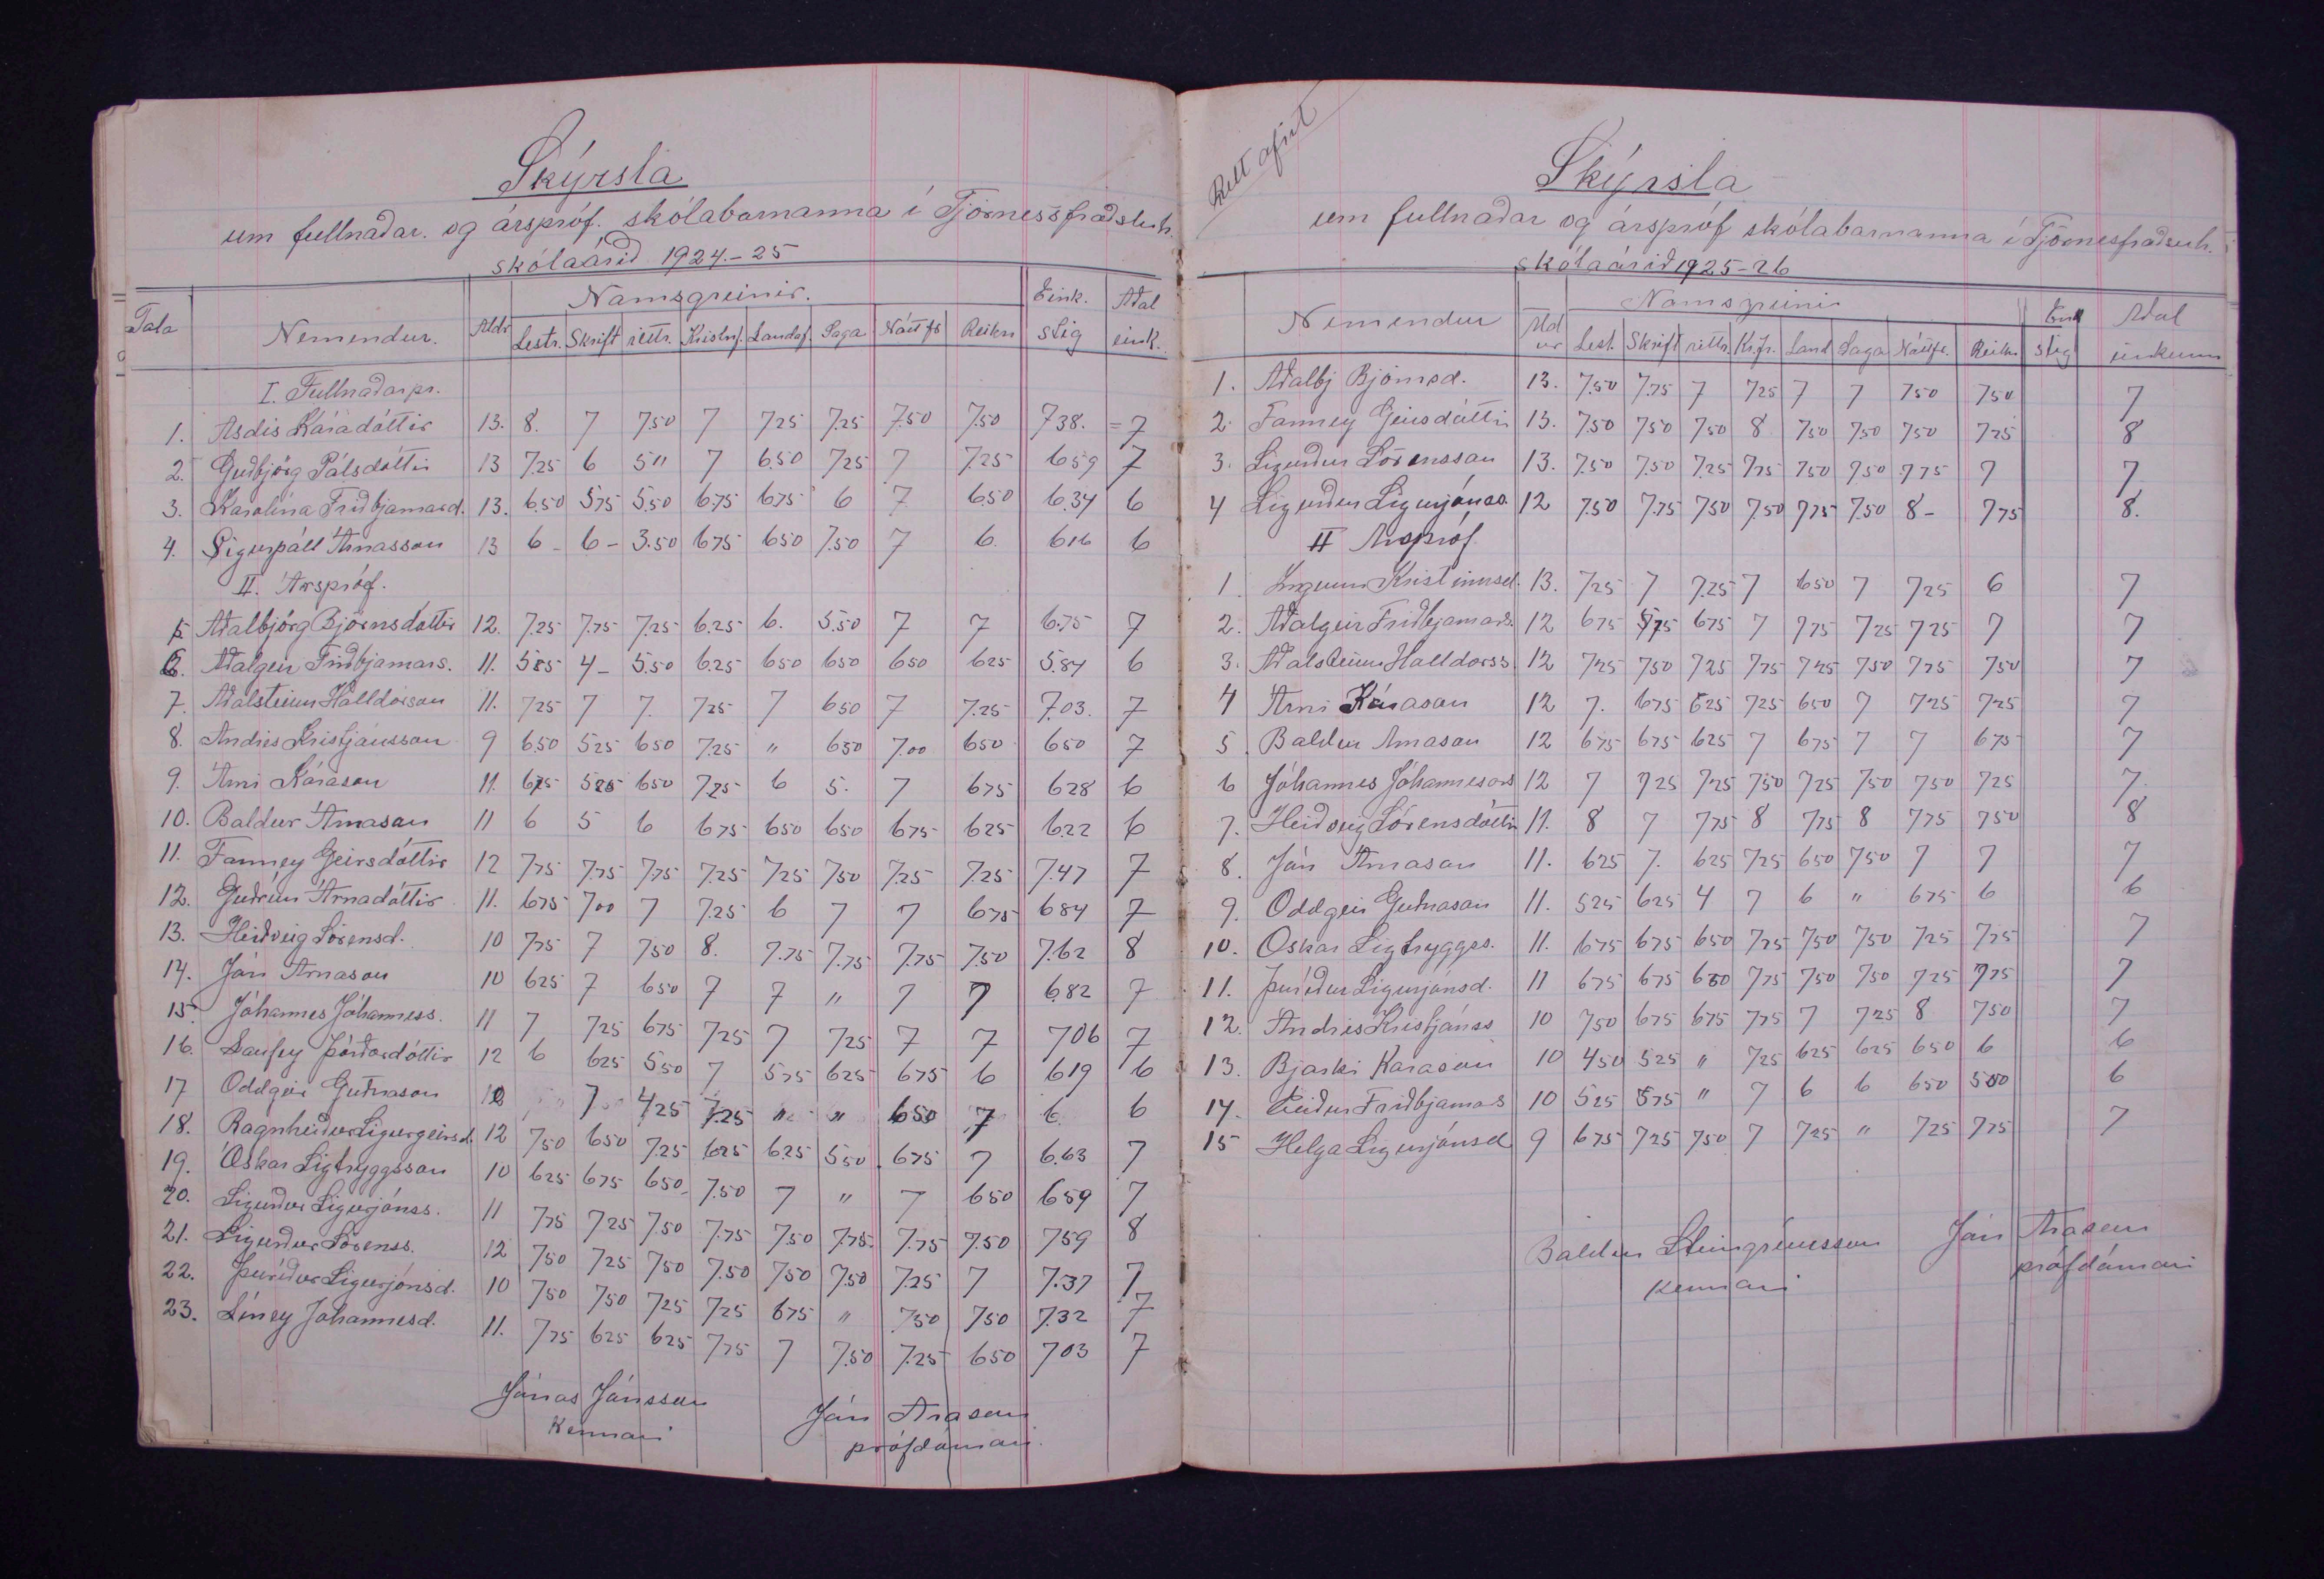 Skýrsla
um fullnaðar. og árspróf. skólabarnanna í Tjörness
skólaárið 1924-25
Tala Nemendur. Aldr Namsgreinir. Eink. stig Aðal eink.
Lestr. Skrift réttr. Kristnf. Landaf. Saga Náttfr Reikn
I. Fullnaðarpr.
1. Asdis Káradóttir 13. 8. 7 7.50 7 7.25 7.25 7.50 7.50 7.38. = 7
2. Guðbjörg Pálsdóttir 13 7.25 6 5" 7 6.50 7.25 7 7.25 6.59 7
3. Karolína Friðbjarnard. 13. 6.50 5.75 5.50 6.75 6.75 6 7 6.50 6.34 6
4. Sigurpáll Árnasson 13 6 - 6 - 3.50 675 650 7.50 7 6. 616 6
II. Árspróf.
5. Aðalbjörg Björnsdóttir 12. 7.25 7.75 7.25 6.25 6. 5.50 7 7 6.75 7
6. Aðalgeir Friðbjarnars. 11. 585 4 - 5.50 6.25 650 650 650 625 5.84 6
7. Aðalsteinn Halldórsson 11. 725 7 7. 725 7 650 7 7.25 7.03. 7
8. Andrés Kristjánsson 9 6.50 525 650 7.25 " 650 7.00 650 650 7
9. Árni Kárason 11. 675 525 650 7.25 6 5. 7 675 628 6
10. Baldur Árnason 11 6 5 6 675 650 650 675 625 6.22 6
11. Fanney Geirsdóttir 12 775 7.75 7.75 7.25 7.25 750 7.25 7.25 7.47 7
12. Guðrún Árnadóttir 11. 675 700 7 7.25 6 7 7 675 684 7
13. Heiðveig Sörensd. 10 775 7 750 8. 7.75 7.75 7.75 7.50 7.62 8
14. Ján Árnason 10 625 7 650 7 7 " 7 7 6.82 7
15. Jóhannes Jóhanness. 11 7 725 675 725 7 725 7 7 706 7
16. Laufey Þórðardóttir 12 6 625 550 7 575 625 675 6 619 6
17 Oddgeir Guðnason 7 425 7.25 " " 650 7 6. 6
18. Ragnheiður Sigurgeirsd. 12 750 650 7.25 625 625 550 675 7 6.63 7
19. Óskar Sigtryggsson 10 625 675 650 7.50 7 " 7 650 659 7
20. Sigurður Sigurjónss. 11 775 725 7.50 7.75 7.50 7.75 7.75 7.50 759 8
21. Sigurður Sörenss. 12 750 725 750 7.50 750 7.50 7.25 7 7.37 7
22. Þuríður Sigurjónsd. 10 750 750 725 725 675 " 750 750 7.32 7
23. Líney Jóhannesd. 11. 775 625 625 775 7 7.50 7.25 650 703 7
Jónas Jónsson
Kennari
Ján Arason
prófdómari.
Rétt afrit
Skýrsla
um fullnaðar og árspróf skólabarnanna í
skólaárið 1925-26
Nemendur Aldur Namsgreinir Eink stig Aðal einkunn
Lest. Skrift réttr. Kr.fr. Land Saga Náttfr. Reikn
1. Aðalbj Björnsd. 13. 7.50 7.75 7 725 7 7 750 750 7
2. Fanney Geirsdóttir 13. 7.50 750 750 8 750 750 750 725 8
3. Sigurður Sörensson 13. 7.50 7.50 7.25 775 750 750 775 7 7
4 Sigurður Sigurjónss. 12 7.50 7.75 750 7.50 775 7.50 8 - 775 8.
II Árspróf
1. Ingunn Kristinnsd. 13. 725 7 7.25 7 650 7 725 6 7
2. Aðalgeir Friðbjarnars. 12 675 575 675 7 775 725 725 7 7
3. Aðalsteinn Halldorss. 12 725 750 725 775 725 750 775 750 7
4 Árni Kárason 12 7. 675 625 725 650 7 725 725 7
5. Baldur Árnason 12 675 675 625 7 675 7 7 675 7
6 Jóhannes Jóhanness 12 7 725 725 750 725 750 750 725 7.
7. Heiðveig Sörensdóttir 11. 8 7 775 8 775 8 775 750 8
8. Ján Árnason 11. 625 7. 625 725 650 750 7 7 7
9. Oddgeir Guðnason 11. 525 625 4 7 6 " 675 6 6
10. Óskar Sigtryggss. 11. 675 675 650 725 750 750 725 725 7
11. Þuríður Sigurjónsd. 11 675 675 650 775 750 750 725 775 7
12. Andrés Kristjánss 10 750 675 675 775 7 725 8 750 7
13. Bjarki Karason 10 450 525 " 725 625 625 650 6 6
14. Eiður Friðbjarnas 10 525 575 " 7 6 6 650 550 6
15 Helga Sigurjónsd 9 675 725 750 7 725 " 725 775 7
Baldur Steingrímsson
Kennari
Ján Arason
prófdómari